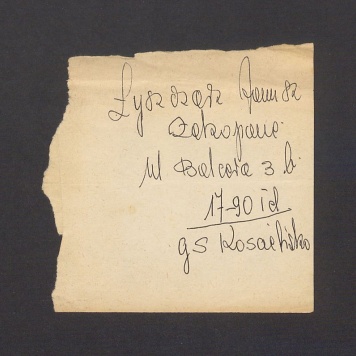 Łyszczarz Janusz
Zakopane
ul Balcera 3 b.
17-90 id
GS Kosaćisko